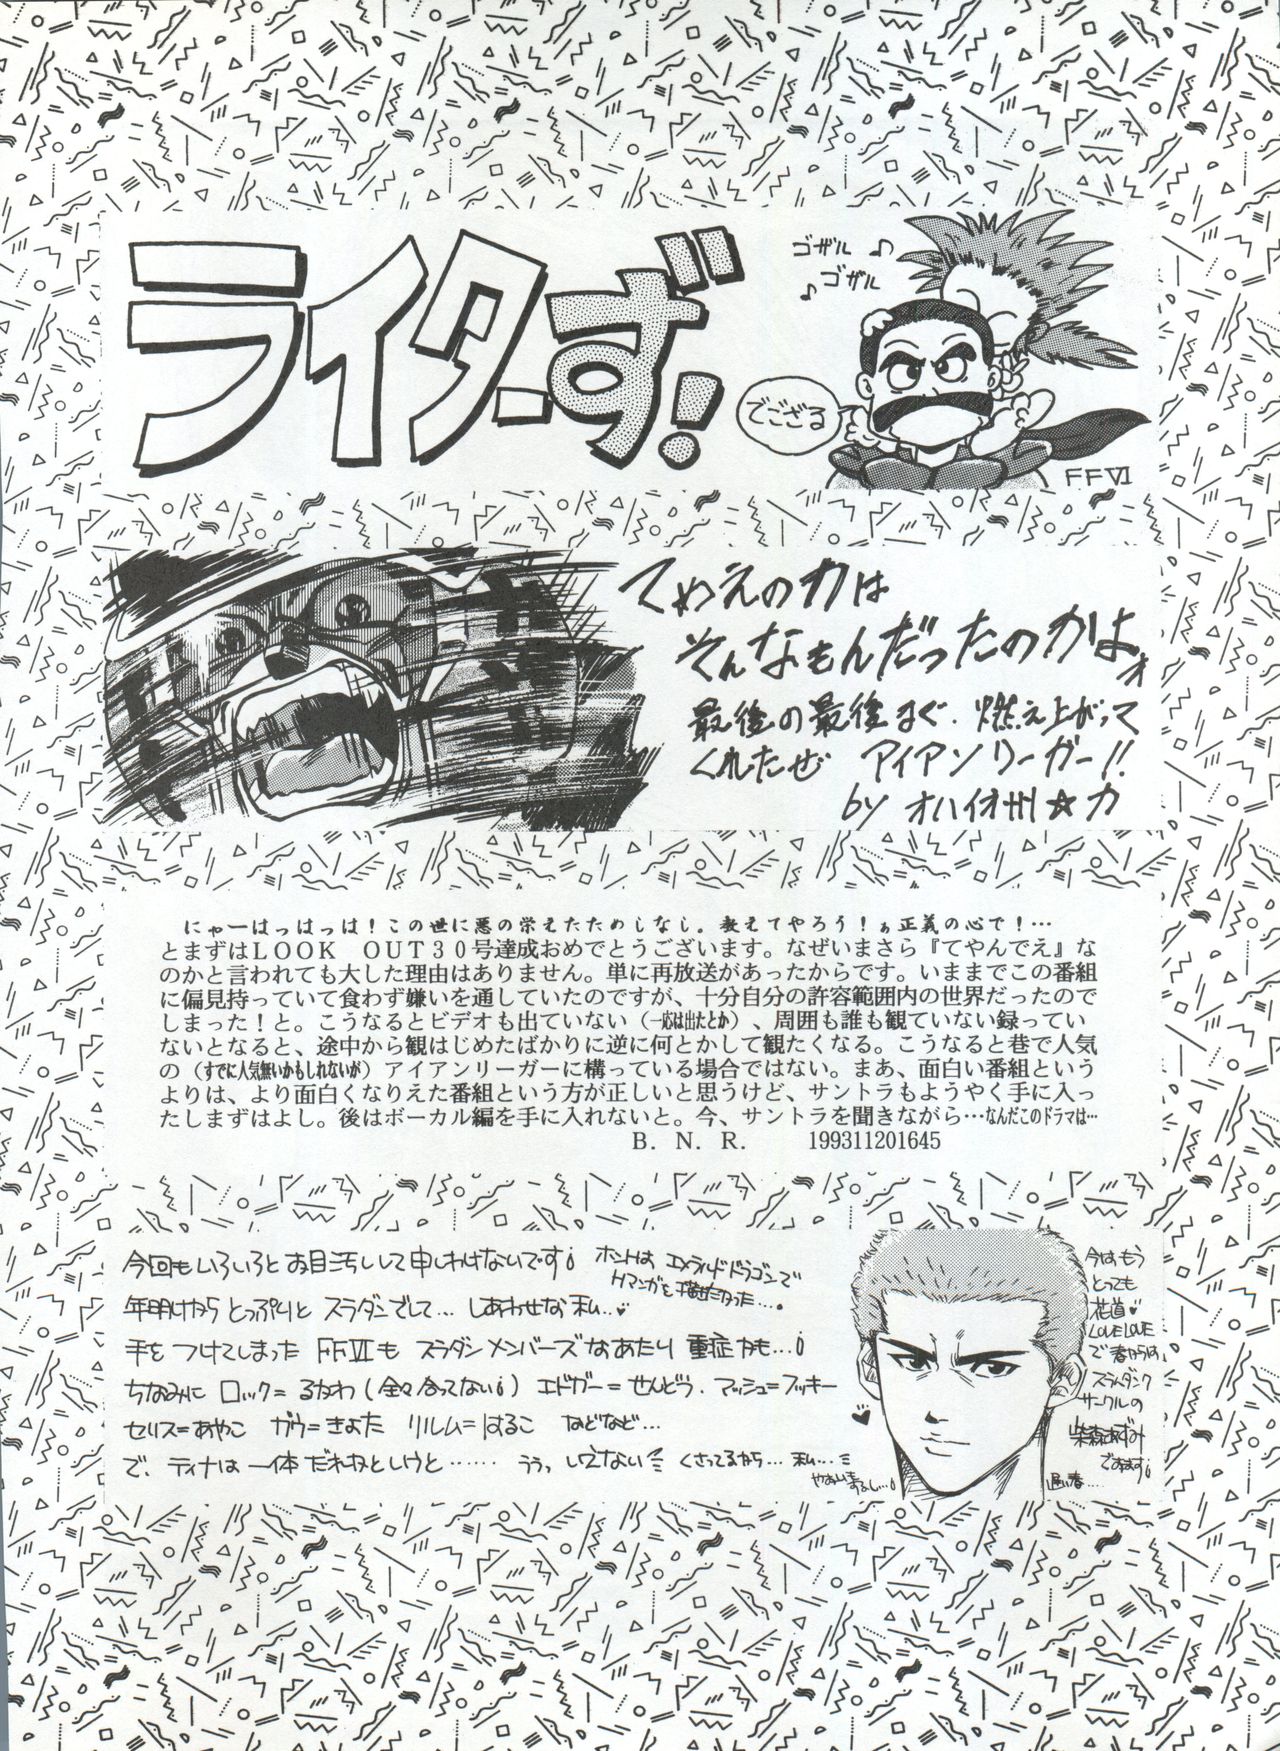 ライターず!
ゴザル♪
♪ゴザル
でござる
FFⅥ
てめえの力は
そんなもんだったのかよォ
最後の最後まで、燃え上がって
くれたぜ アイアンリーガー!!
by オハイオ州☆力
にゃーはっはっは!この世に悪の栄えたためしなし。教えてやろう!ぁ正義の心で!…
とまずはLOOK OUT30号達成おめでとうございます。なぜいまさら『てやんでえ』な
のかと言われても大した理由はありません。単に再放送があったからです。いままでこの番組
に偏見持っていて食わず嫌いを通していたのですが、十分自分の許容範囲内の世界だったので
しまった!と。こうなるとビデオも出ていない(一応は出たとか)、周囲も誰も観ていない録ってい
ないとなると、途中から観はじめたばかりに逆に何とかして観たくなる。こうなると巷で人気
の(すでに人気無いかもしれないが)アイアンリーガーに構っている場合ではない。まあ、面白い番組という
よりは、より面白くなりえた番組という方が正しいと思うけど、サントラもようやく手に入っ
たしまずはよし。後はボーカル編を手に入れないと。今、サントラを聞きながら…なんだこのドラマは…
B. N. R. 199311201645
今回もいろいろとお目汚しして申しわけないです。
ホントは エメラルドドラゴンで
マンガを描きたかった…。
年明けから とっぷりと スラダンでして… しあわせな私…♥
手をつけてしまった FFⅥも スラダンメンバーズなあたり 重症かも…!
ちなみに ロック=るかわ(全々合ってない!) エドガー=せんどう、マッシュ=フッキー
セリス=あやこ ガウ=きよた リルム=はるこ などなど…
で、ティナは 一体だれかというと…… うぅっいえない くさってるから…私…
今はもう
とっても
花道♥
LOVELOVE
で 春からは、
スラムダンク
サークルの
柴森あずみ
でおます!